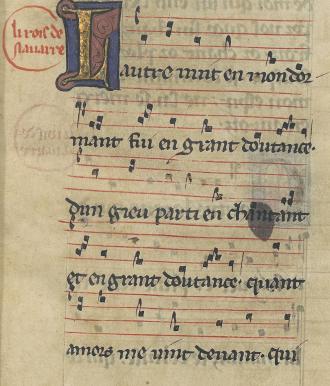 li rois de
nauarre
Lautre nuit en mon dor
mant fui en grant doutance.
dun gieu parti en chantant
et en grant doutance. quant
amors me uint deuant. qui